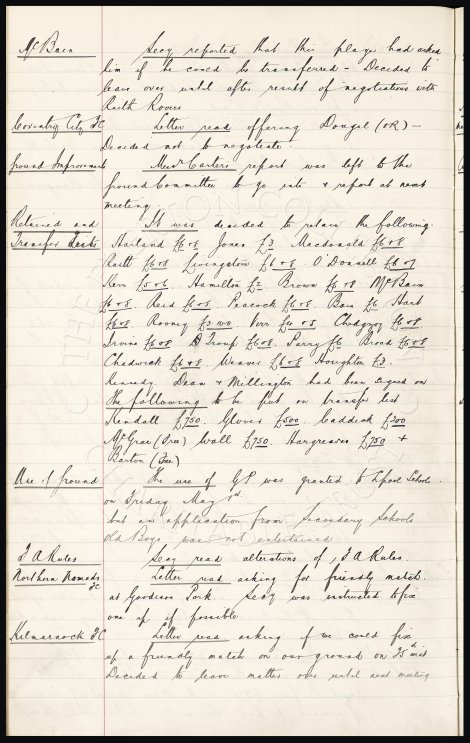 McBain Secy reported that this player had asked
him if he could be transferred - Decided to
leave over until after result of negotiations with
Raith Rovers
Coventry City FC Letter read offering Dougal (OR) -
Decided not to negotiate.
Ground Improvements Messrs Carter's report was left to the
Ground Committee to go into & report at next
meeting.
Retained and It was decided to retain the following
Transfer Lists Harland £6 & 8 Jones £3 Macdonald £6 & 8
Raitt £6 & 8 Livingston £6 & 8 O'Donnell £6 &
Kerr £5 & 6 Hamilton £2 Brown £6 & 8 McBain
£6 & 8 Reid £6 & 8 Peacock £6 & 8 Bain £6 Hart
£6 & 8 Rooney Virr £4 & 5 Chedgzoy £6 & 8
Irvine £6 & 8 D Troup £6 & 8 Parry £6 Broad £6 & 8
Chadwick £6 & 8 Weaver £6 & 8 Houghton £3.
Kennedy, Dean & Millington had been signed on
The following to be put on transfer list
Kendall £750 Glover £500 Caddick £200
McGrae (Free) Wall £750 Hargreaves £750 &
Barton (Free)
Use of Ground The use of G.P. was granted to Lpool Schools
on Friday May 1st.
but an application from Secondary Schools
Old Boys was not entertained
F A Rules Secy read alterations of F A Rules
Northern Nomads Letter read asking for friendly match
FC at Goodison Park Secy was instructed to fix
one up if possible
Kilmarnock FC Letter read asking if we could fix
up a friendly match on our ground on 25th inst
Decided to leave matter over until next meeting